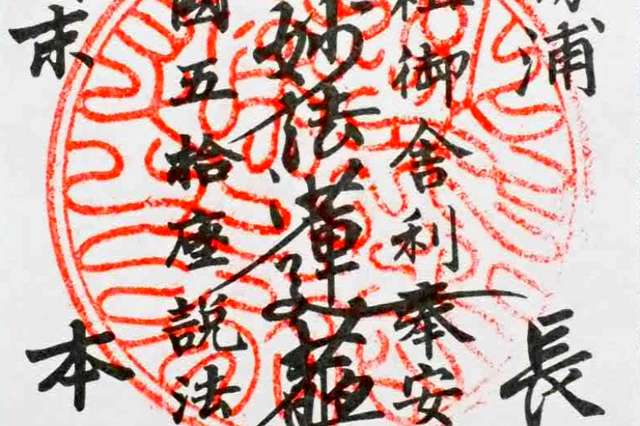 浦 長
御舎利奉安
妙法蓮華
國五拾座説法
末 本